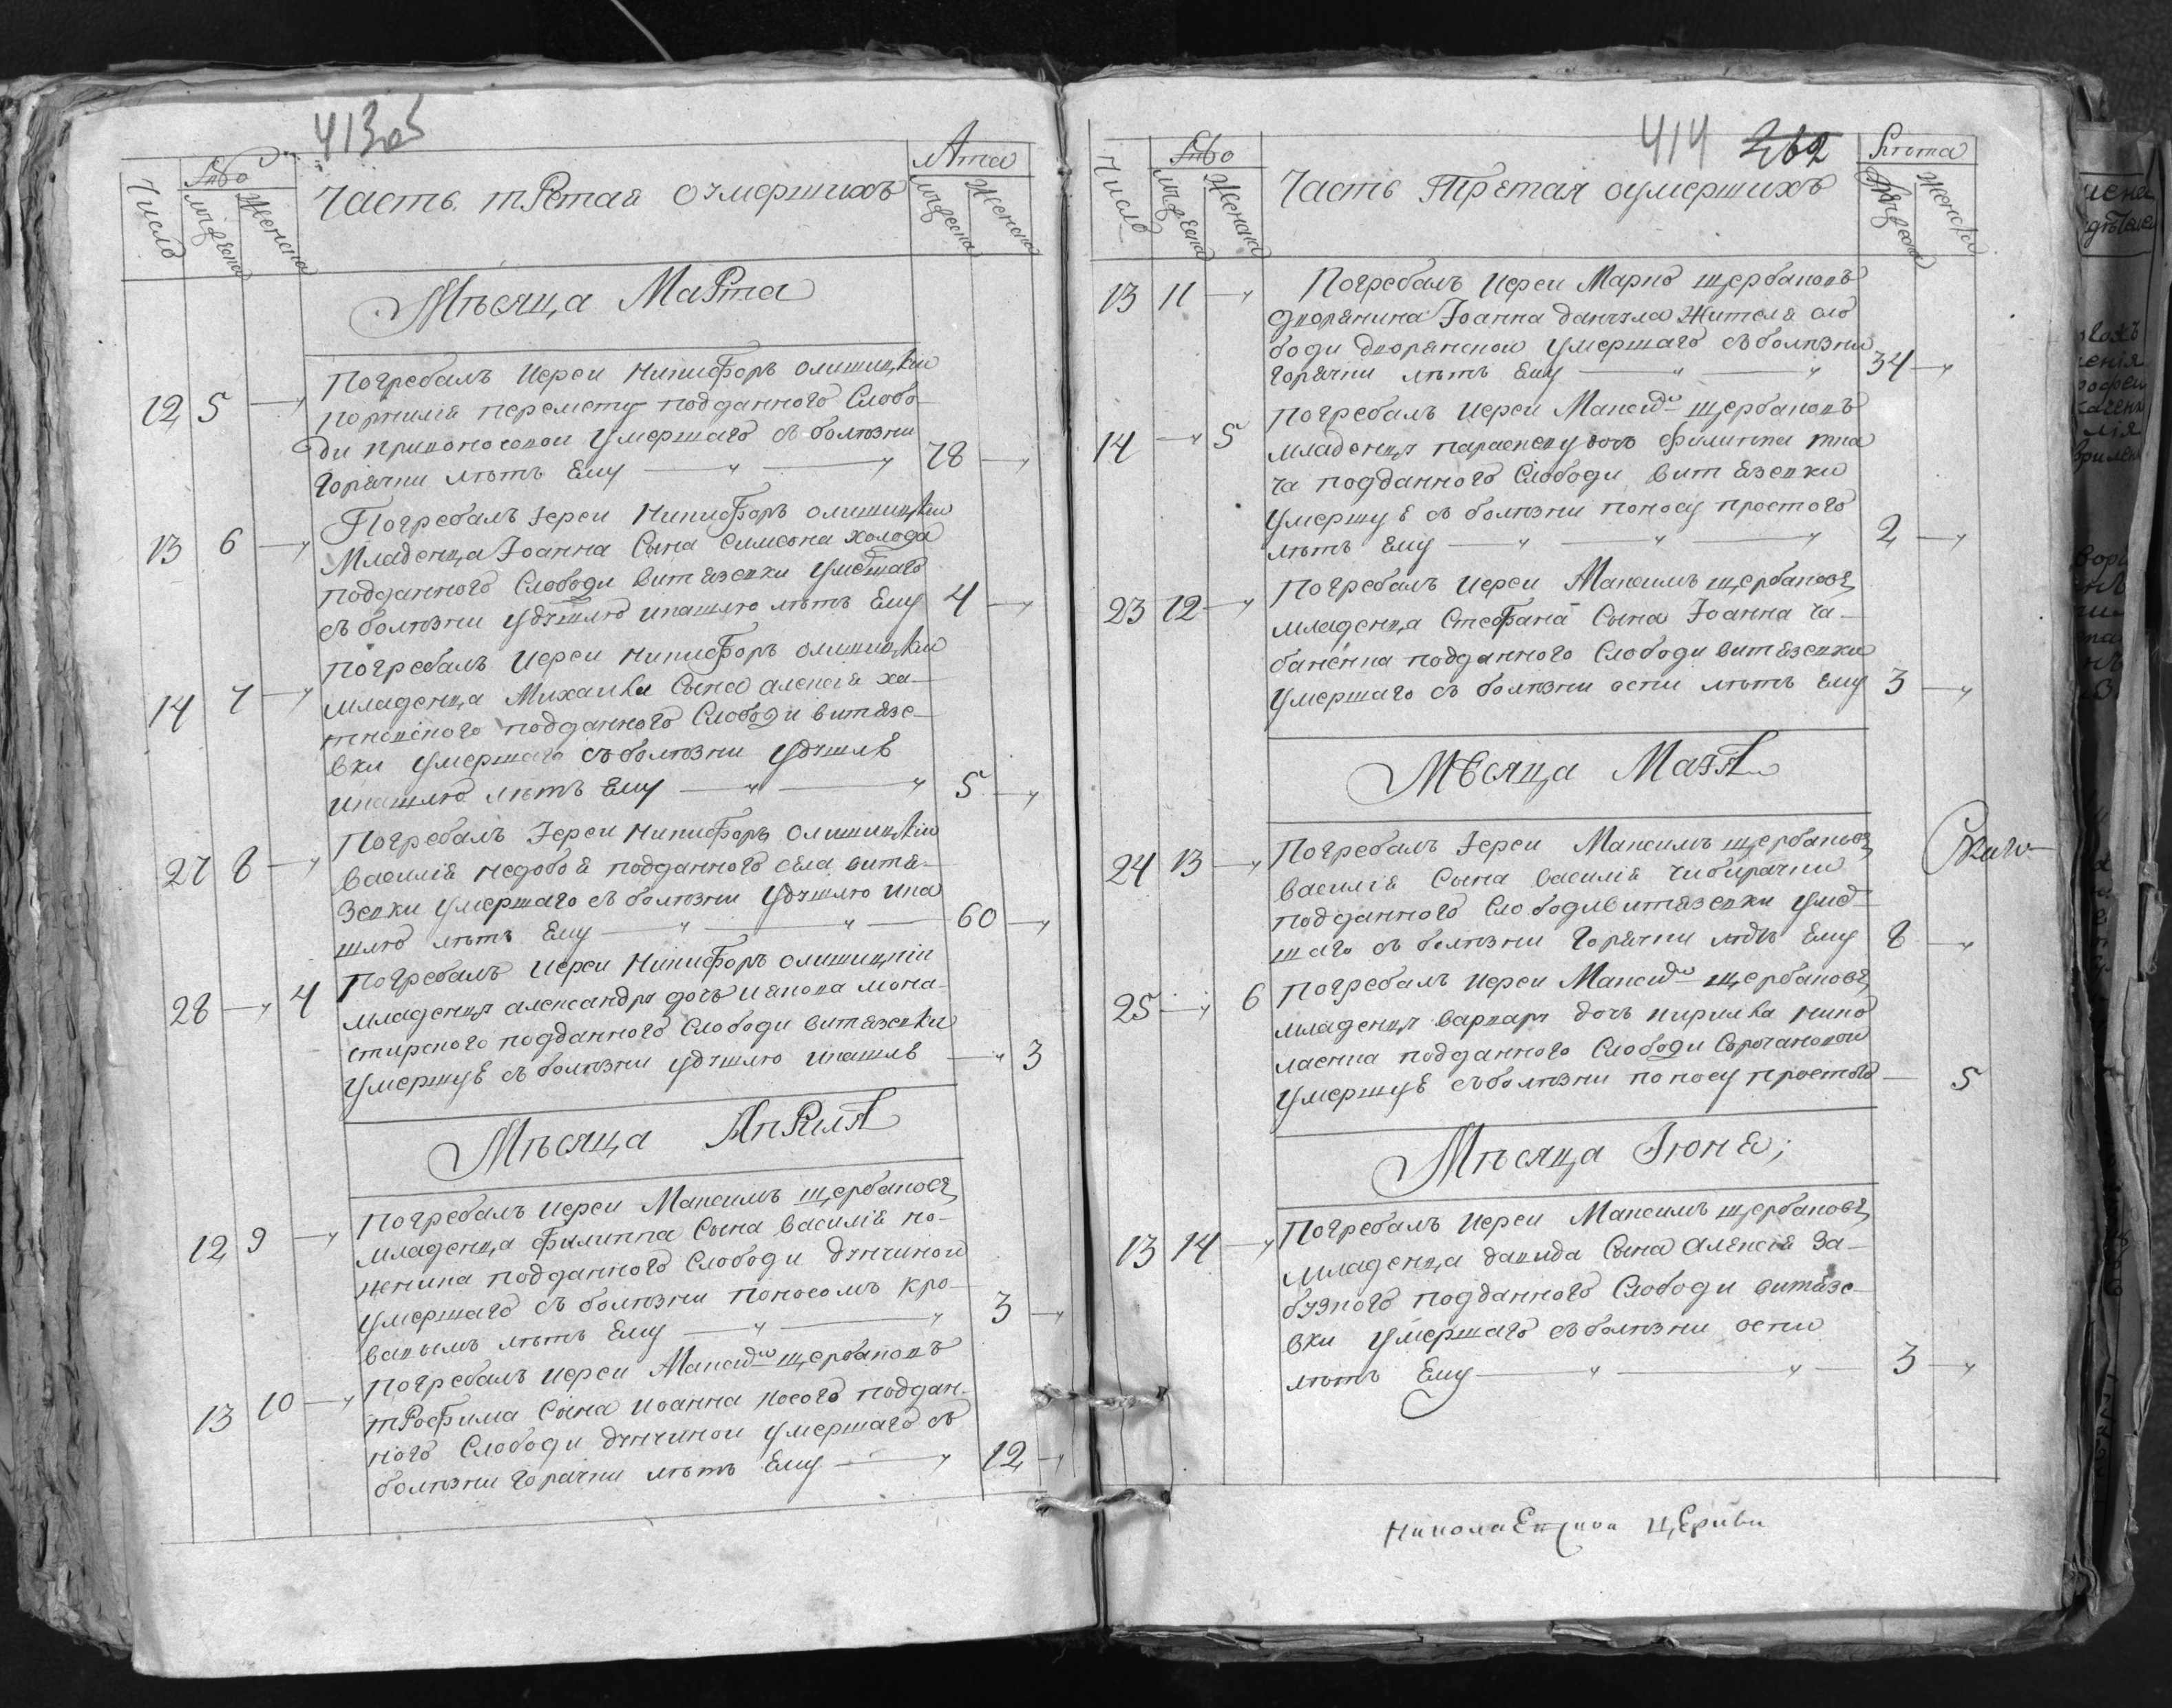 413об
Число
Мужеска
Женска
Часть третая о умершихъ
Лѣта
Мужеска
Женска
Мѣсяца Марта
12 5 — Погребалъ Иереи Никифоръ
Корнилія перемету подданного Слобо
ди Умершаго съ болѣзни
Горячки лѣтъ Ему — 78 —
13 6 — Погребалъ Іереи Никифоръ
Младенца Іоанна Сына Симеона холода
подданного Слободи витязевки Умершаго
съ болѣзни удушлю икашлю лѣтъ Ему 4 —
14 7 — Погребалъ Иереи Никифоръ
младенца Михаила Сына алексія
подданного Слободи витязе
вки Умершаго съ болѣзни Удушлѣ
икашлю лѣтъ Ему — 5 —
27 8 — Погребалъ Іереи Никифоръ
василія недобоя подданного села витя
зевки Умершаго съ болѣзни Удушлю ика
шлю лѣтъ Ему — 60 —
28 — 4 Погребалъ Иереи Никифоръ
младенця александру дочъ иякова мона
стирского подданного Слободи витязевки
Умершуѣ съ болѣзни удушлю икашлѣ — 3
Мѣсяца Априля
12 9 — Погребалъ Иереи Максимъ щербаковъ
младенца Филиппа Сына василія
подданного Слободи дунчинои
Умершаго съ болѣзни поносомъ кро
вавымъ лѣтъ Ему — 3 —
13 10 — Погребалъ Иереи Максимъ щербаковъ
трофима Сына иоанна косого поддан
ного Слободи дунчинои Умершаго съ
болѣзни горячки лѣтъ Ему — 12 —
414 262
Число
Мужеска
Женска
Часть Третая оумершихъ
Лѣта
Мужеска
Женска
13 11 — Погребалъ Иереи Марко щербаковъ
дворянина Іоанна данчула Жителя сло
боди дворянскои Умершаго съ болѣзни
горячки лѣтъ Ему — 34 —
14 — 5 Погребалъ Иереи Максимъ щербаковъ
младенця параскеву дочъ Филиппа тка
ча подданного Слободи витязевки
Умершуѣ съ болѣзни поносу простого
лѣтъ Ему — 2 —
23 12 — Погребалъ Иереи Максимъ щербаковъ
младенца Стефана Сына Іоанна ча
баненка подданного Слободи витязевки
Умершаго съ болѣзни оспи лѣтъ Ему 3 —
Мѣсяца Маія
24 13 — Погребалъ Іереи Максимъ щербаковъ
василія Сына василія чибирачки
подданного Слободи витязевки Умер
шаго съ болѣзни горячки лѣтъ Ему 8 —
25 — 6 Погребалъ Иереи Максимъ щербаковъ
младенця варвару дочъ кирила нико
лаенка подданного Слободи Сорочановои
Умершуѣ съ болѣзни поносу простого — 5
Мѣсяца Іюня;
13 14 — Погребалъ Иереи Максимъ щербаковъ
младенца давида Сына Алексія За
бузного подданного Слободи витязе
вки Умершаго съ болѣзни оспи
лѣтъ Ему — 3 —
церкви